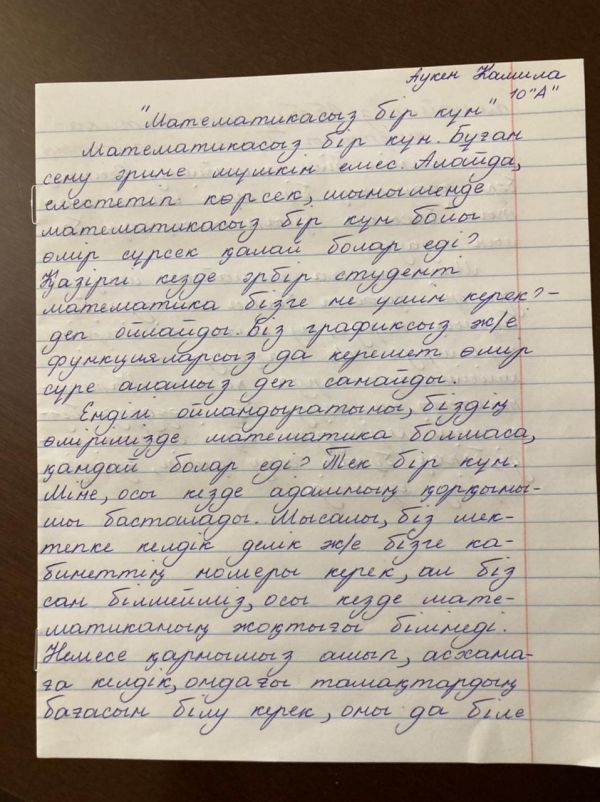 Аукен Камила
10"А"
"Математикасыз бір күн"
Математикасыз бір күн. Бұған
сену әрине мүмкін емес. Алайда,
елестетіп көрсек, шынымен де
математикасыз бір күн бойы
өмір сүрсек қалай болар еді?
Қазіргі кезде әрбір студент
математика бізге не үшін керек?-
деп ойлайды. Біз графиксыз ж/е
функцияларсыз да керемет өмір
сүре аламыз деп санайды.
Ендігі ойландыратыны, біздің
өмірімізде математика болмаса,
қандай болар еді? Тек бір күн.
Міне, осы кезде адамның қорқыны-
шы басталады. Мысалы, біз мек-
тепке келдік делік ж/е бізге ка-
бинеттің номеры керек, ал біз
сан білмейміз, осы кезде мате-
матиканың жоқтығы білінеді.
Немесе қарнымыз ашып, асхана-
ға келдік, ондағы тамақтардың
бағасын білу керек, оны да біле